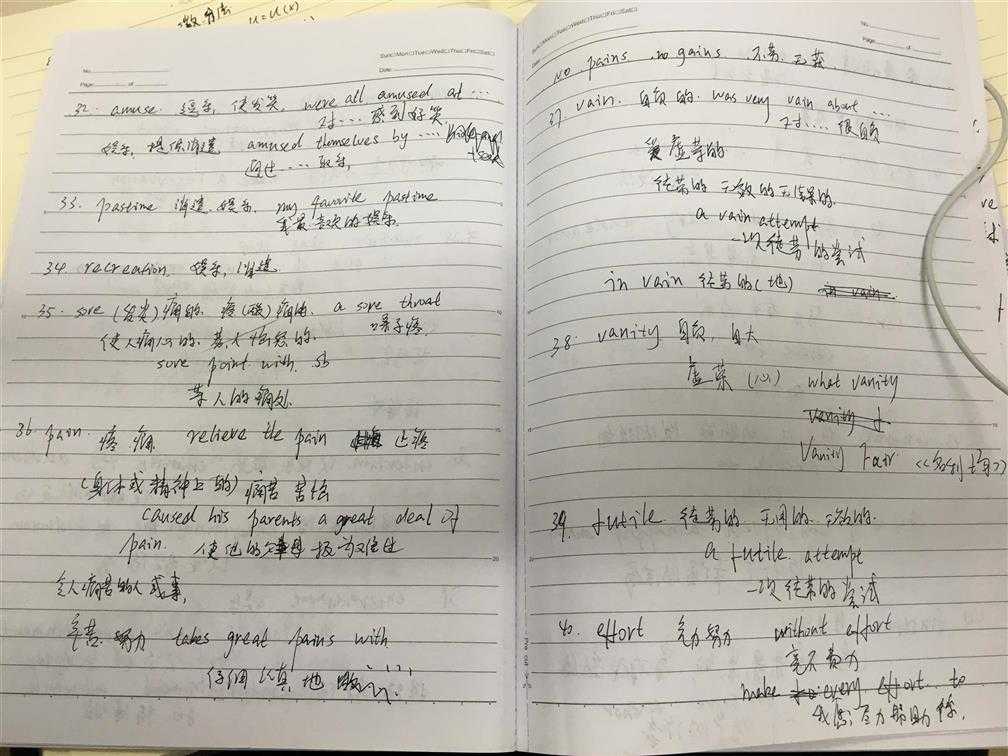 微分法
u = u(x)
Sun□Mon□Tue□Wed□Thu□Fri□Sat□
No.
Date:
Page: of
32. amuse 逗乐, 使发笑, were all amused at ...
对... 感到好笑
娱乐, 提供消遣 amused themselves by ....
通过 ... 取乐,
33. pastime 消遣. 娱乐. my favorite pastime
最喜欢的娱乐.
34. recreation. 娱乐, 消遣.
35. sore (发炎)痛的. 疼(酸)痛的. a sore throat
嗓子疼
使人痛心的. 惹人恼怒的.
sore point with. sb
某人的痛处.
36. pain. 疼痛. relieve the pain 止疼
(身体或精神上的) 痛苦 苦恼
caused his parents a great deal of
pain. 使他的父母极为难过
令人痛苦的人或事,
辛苦. 努力 takes great pains with
仔细认真地做......
Sun□Mon□Tue□Wed□Thu□Fri□Sat□
No.
Date:
Page: of
No pains no gains. 不劳. 无获
37 vain. 自负的. was very vain about....
对.... 很自负
爱虚荣的
徒劳的 无效的 无结果的.
a vain attempt
一次徒劳的尝试
in vain 徒劳的(地) in vain
38. vanity 自负, 自大
虚荣(心) what vanity
vanity f
Vanity Fair 《名利场》
39. futile 徒劳的. 无用的. 无效的.
a futile. attempt
一次徒劳的尝试
40. effort 气力努力 without effort
毫不费力
make every effort to
我会尽力帮助你.